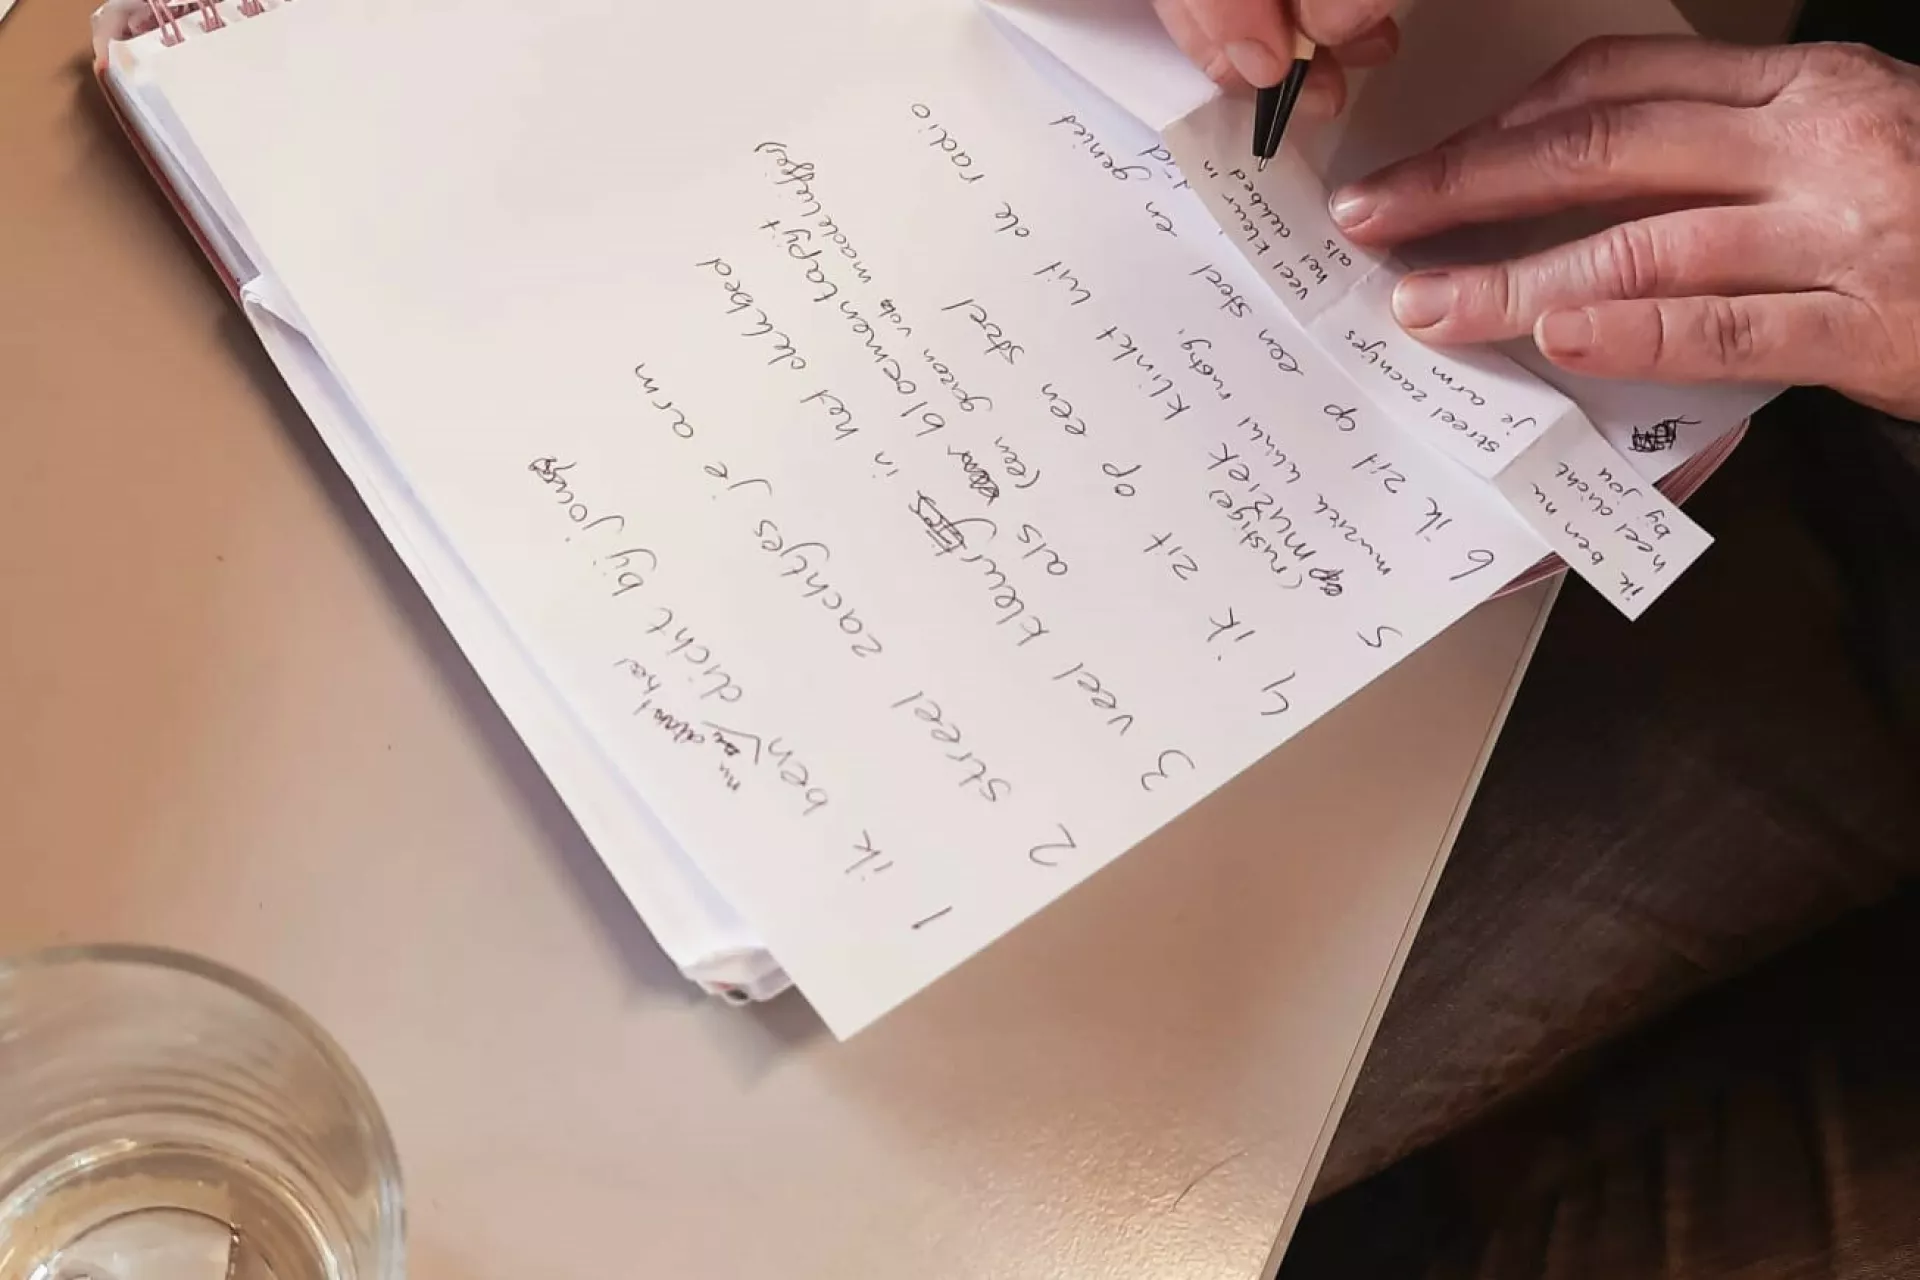 1 ik ben dicht bij jou
nu heel
2 streel zachtjes je arm
3 veel kleur in het dekbed
als bloementapijt
(een groen vol madeliefjes)
4 ik zit op een stoel
5 muziek klinkt uit de radio
(rustige
muziek rustig,
6 ik zit op een stoel en geniet
ik ben nu
heel dicht
bij jou
streel zachtjes
je arm
veel kleur in
het dekbed
als